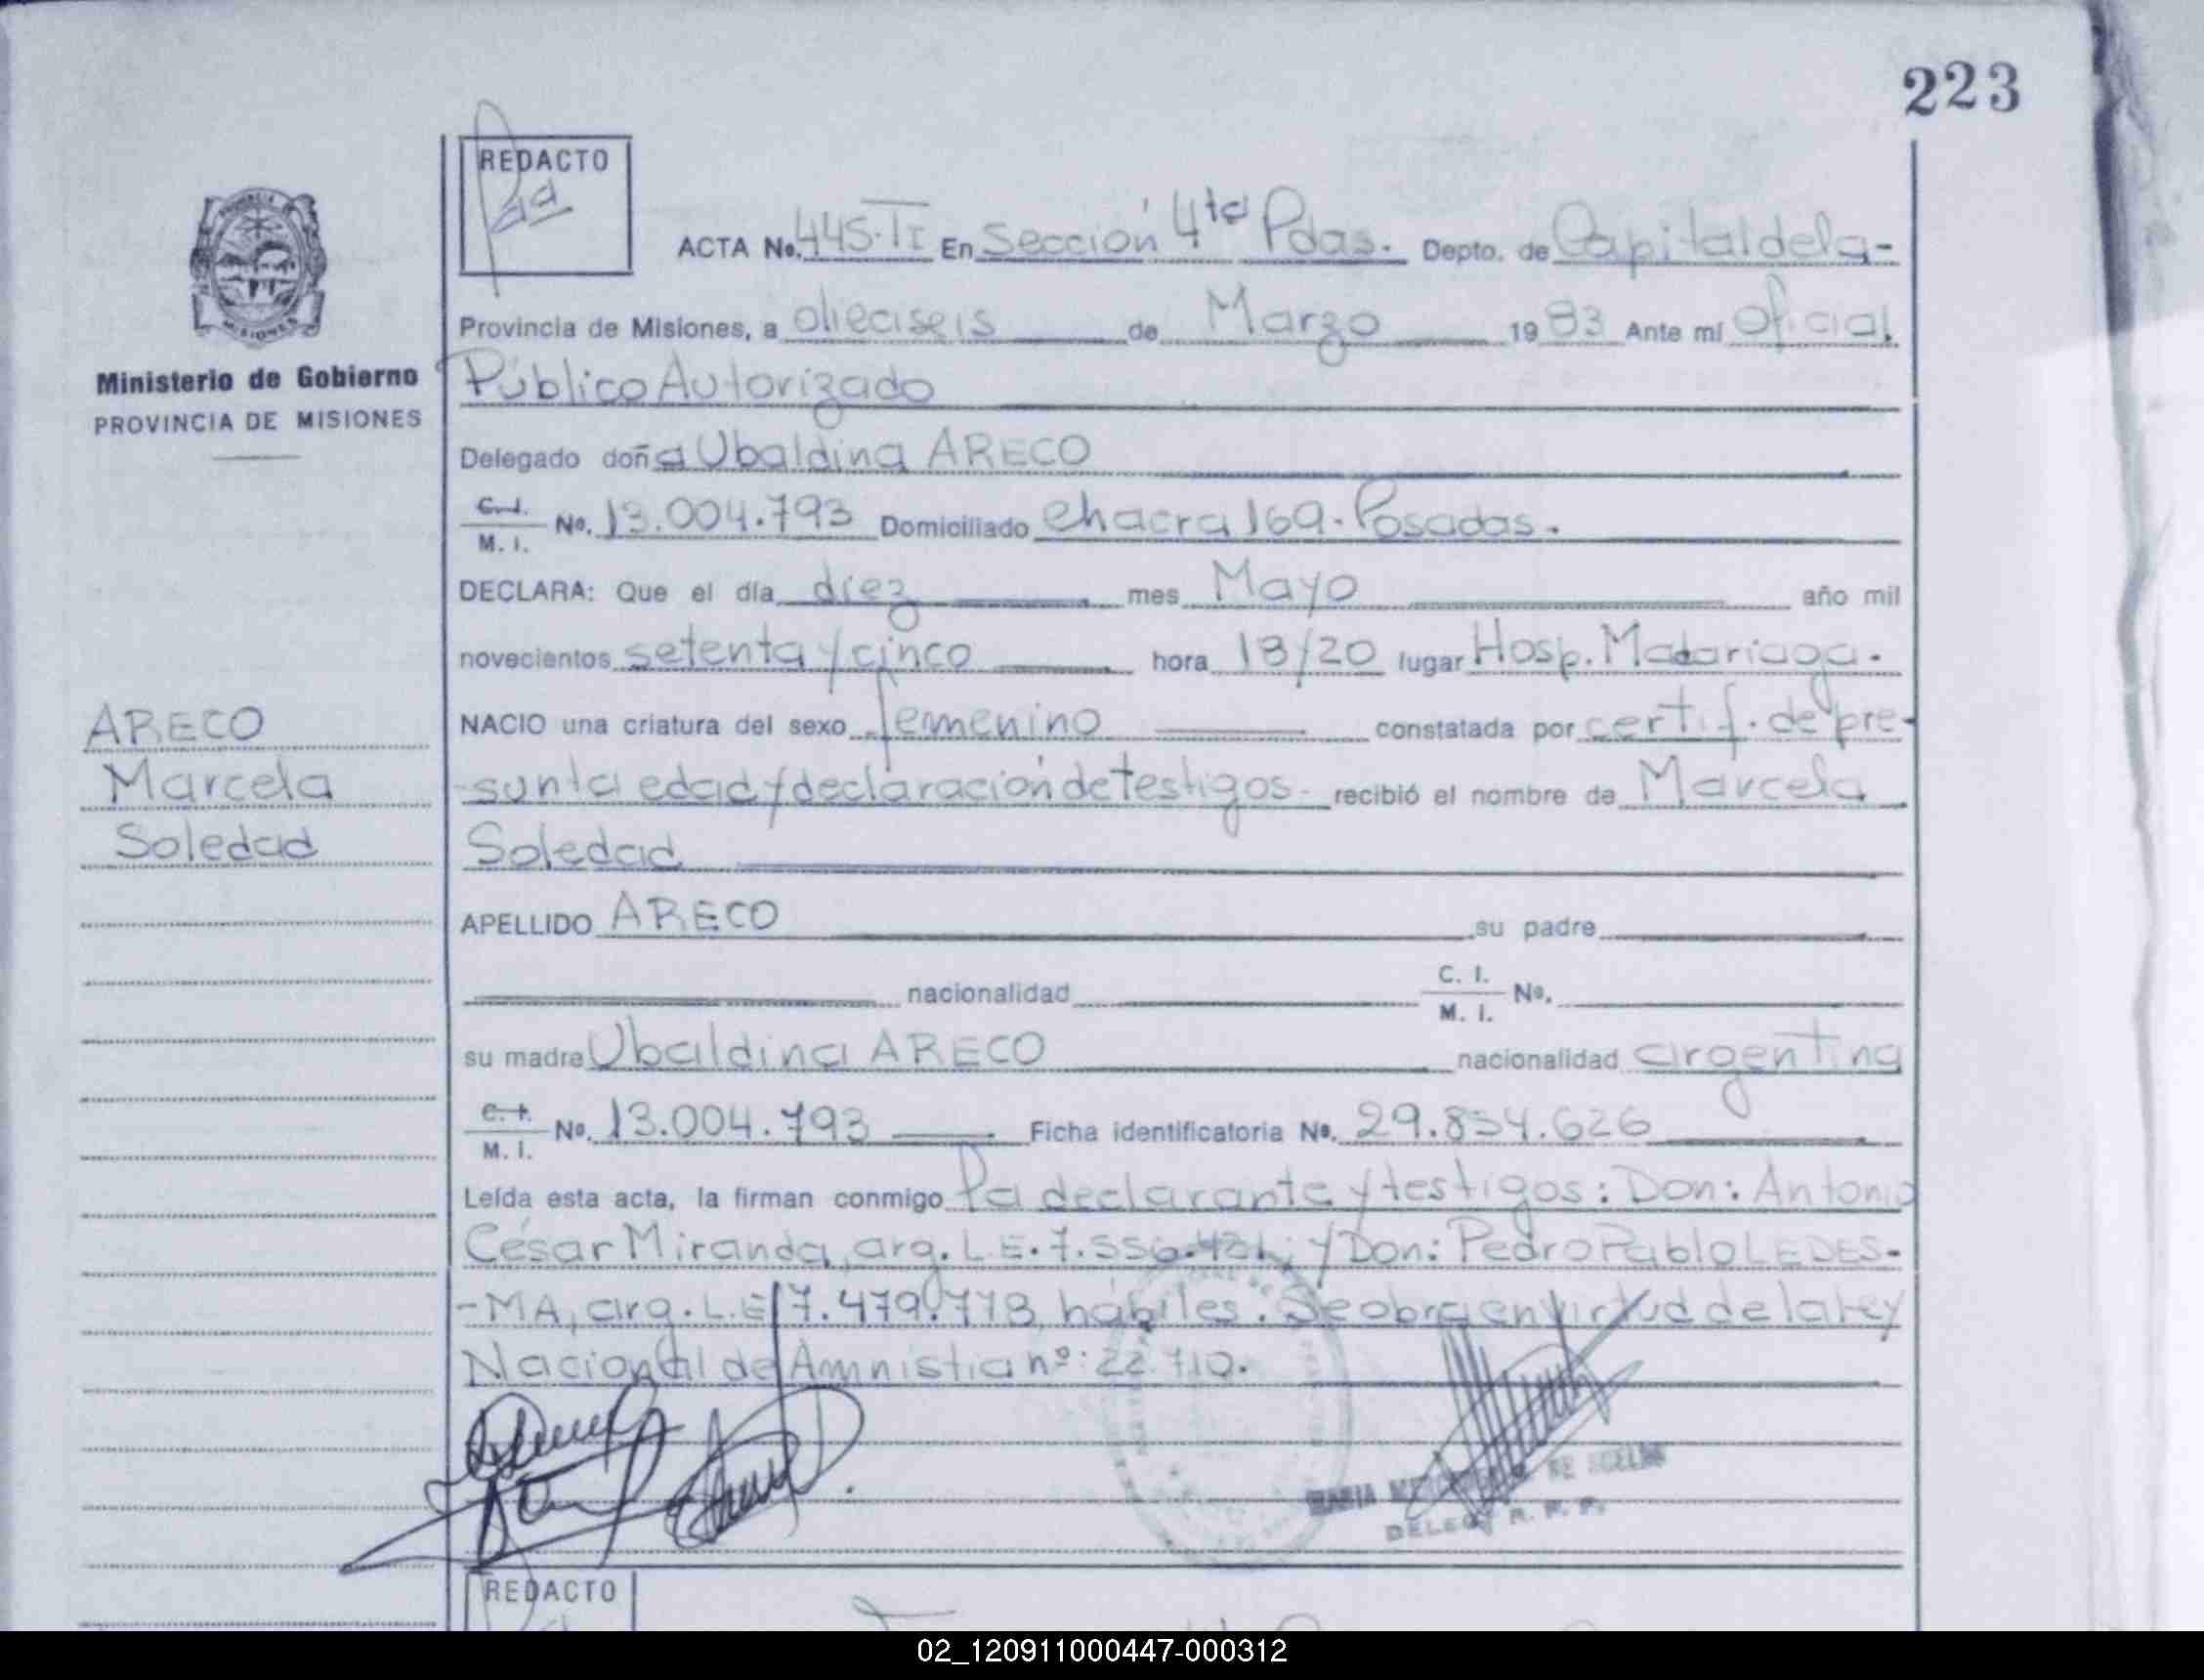 223
REDACTO
ACTA No. 445-TI En Sección 4ta Pdas. Depto. de Capital de la-
Provincia de Misiones, a dieciseis de Marzo 1983 Ante mí Oficial
Ministerio de Gobierno
PROVINCIA DE MISIONES
Público Autorizado
Delegado doña Ubaldina ARECO
C.I. M. I. No. 13.004.793 Domiciliado Chacra 169. Posadas.
DECLARA: Que el día diez mes Mayo año mil
novecientos setenta y cinco hora 18/20 lugar Hosp. Madariaga.
NACIO una criatura del sexo femenino constatada por certif. de pre-
-sunta edad y declaración de testigos- recibió el nombre de Marcela
Soledad
ARECO
Marcela
Soledad
APELLIDO ARECO su padre
nacionalidad C. I. M. I. No.
su madre Ubaldina ARECO nacionalidad argentina
C.I. M. I. No. 13.004.793 Ficha identificatoria No. 29.834.626
Leída esta acta, la firman conmigo la declarante y testigos: Don: Antonio
César Miranda, arg. L.E. y Don: Pedro Pablo LEDES-
-MA, arg. L.E 7.479.778, hábiles. Se obra en virtud de la ley
Nacional de Amnistia nº: 22.710.
MARIA DE
DELEG R. P. P.
REDACTO
02_120911000447-000312